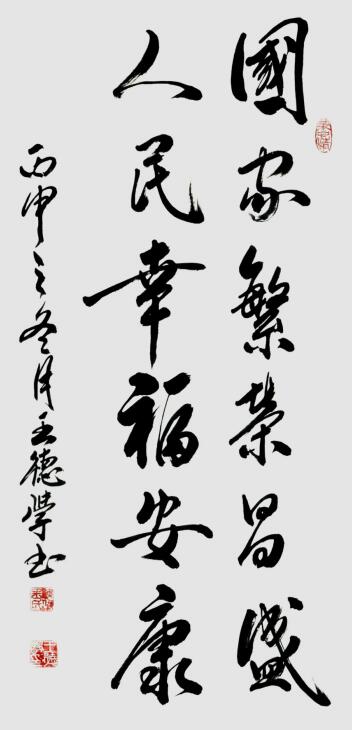 國家繁榮昌盛
人民幸福安康
丙申之冬月王德學书